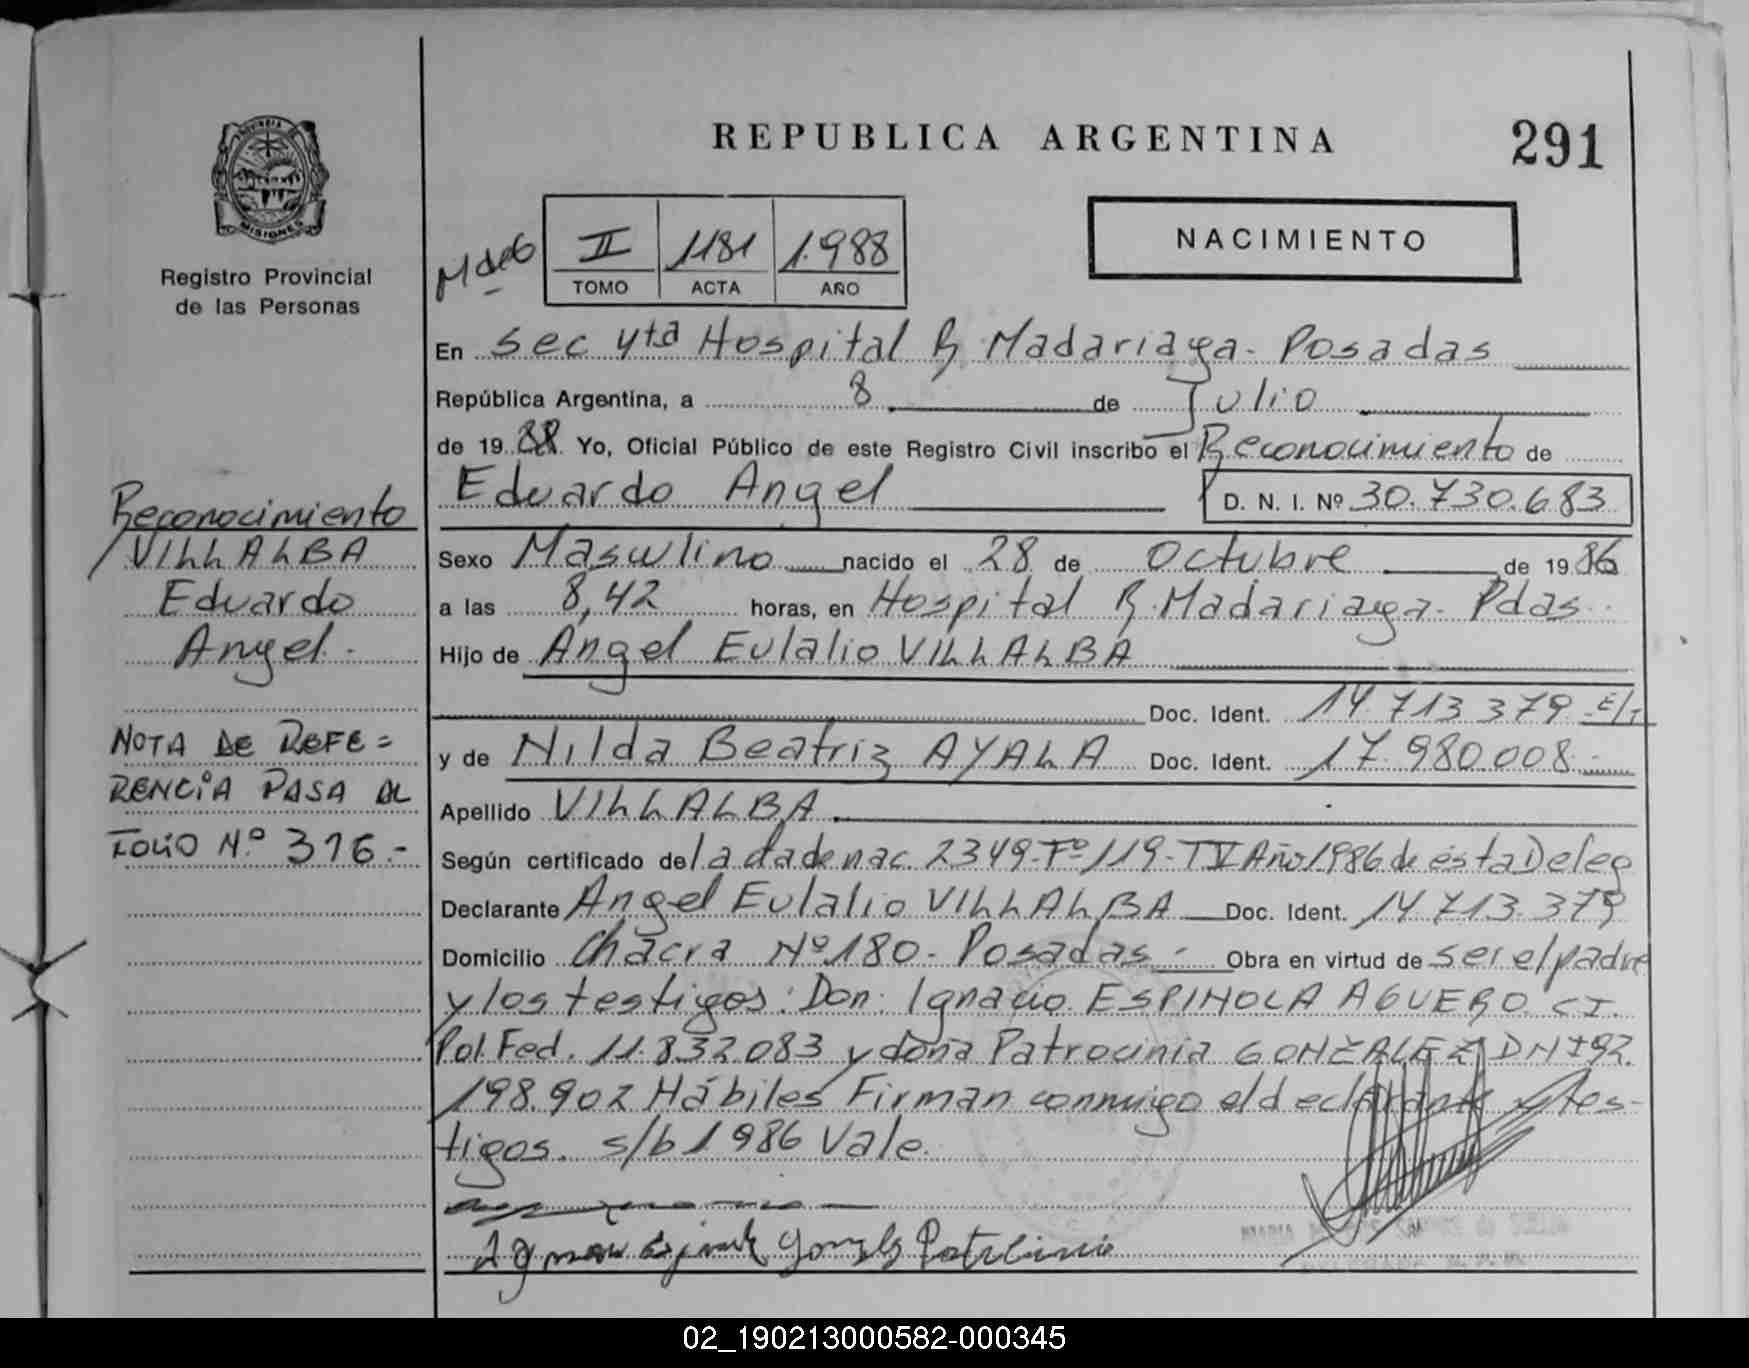 REPUBLICA ARGENTINA
291
PROVINCIA DE
MISIONES
Registro Provincial
de las Personas
II 1181 1.988
TOMO ACTA AÑO
NACIMIENTO
En Sec 4ta Hospital R Madariaga - Posadas
República Argentina, a 8 de Julio
de 19 88 Yo, Oficial Público de este Registro Civil inscribo el Reconocimiento de
Eduardo Angel D. N. I. Nº 30.730.683
Sexo Masculino nacido el 28 de Octubre de 19 86
a las 8,42 horas, en Hospital R. Madariaga - Pdas.
Hijo de Angel Eulalio VILLALBA
Doc. Ident. 14 713 379
y de Nilda Beatriz AYALA Doc. Ident. 17.980.008.-
Apellido VILLALBA
Según certificado de la a da de nac. 2349 - Fº 119 - T IV Año 1986 de ésta Deleg
Declarante Angel Eulalio VILLALBA Doc. Ident. 14 713.379
Domicilio Chacra Nº 180 - Posadas - Obra en virtud de ser el padre
y los testigos: Don: Ignacio ESPINOLA AGUERO CI.
Pol. Fed. 11.832.083 y doña Patrocinia GONZALEZ DNI 92.
198.902 Hábiles Firman conmigo el declarante y tes-
tigos. s/b 1986 Vale.
Reconocimiento
VILLALBA
Eduardo
Angel.-
NOTA DE REFE=
RENCIA PASA AL
FOLIO N.º 316.-
02_190213000582-000345